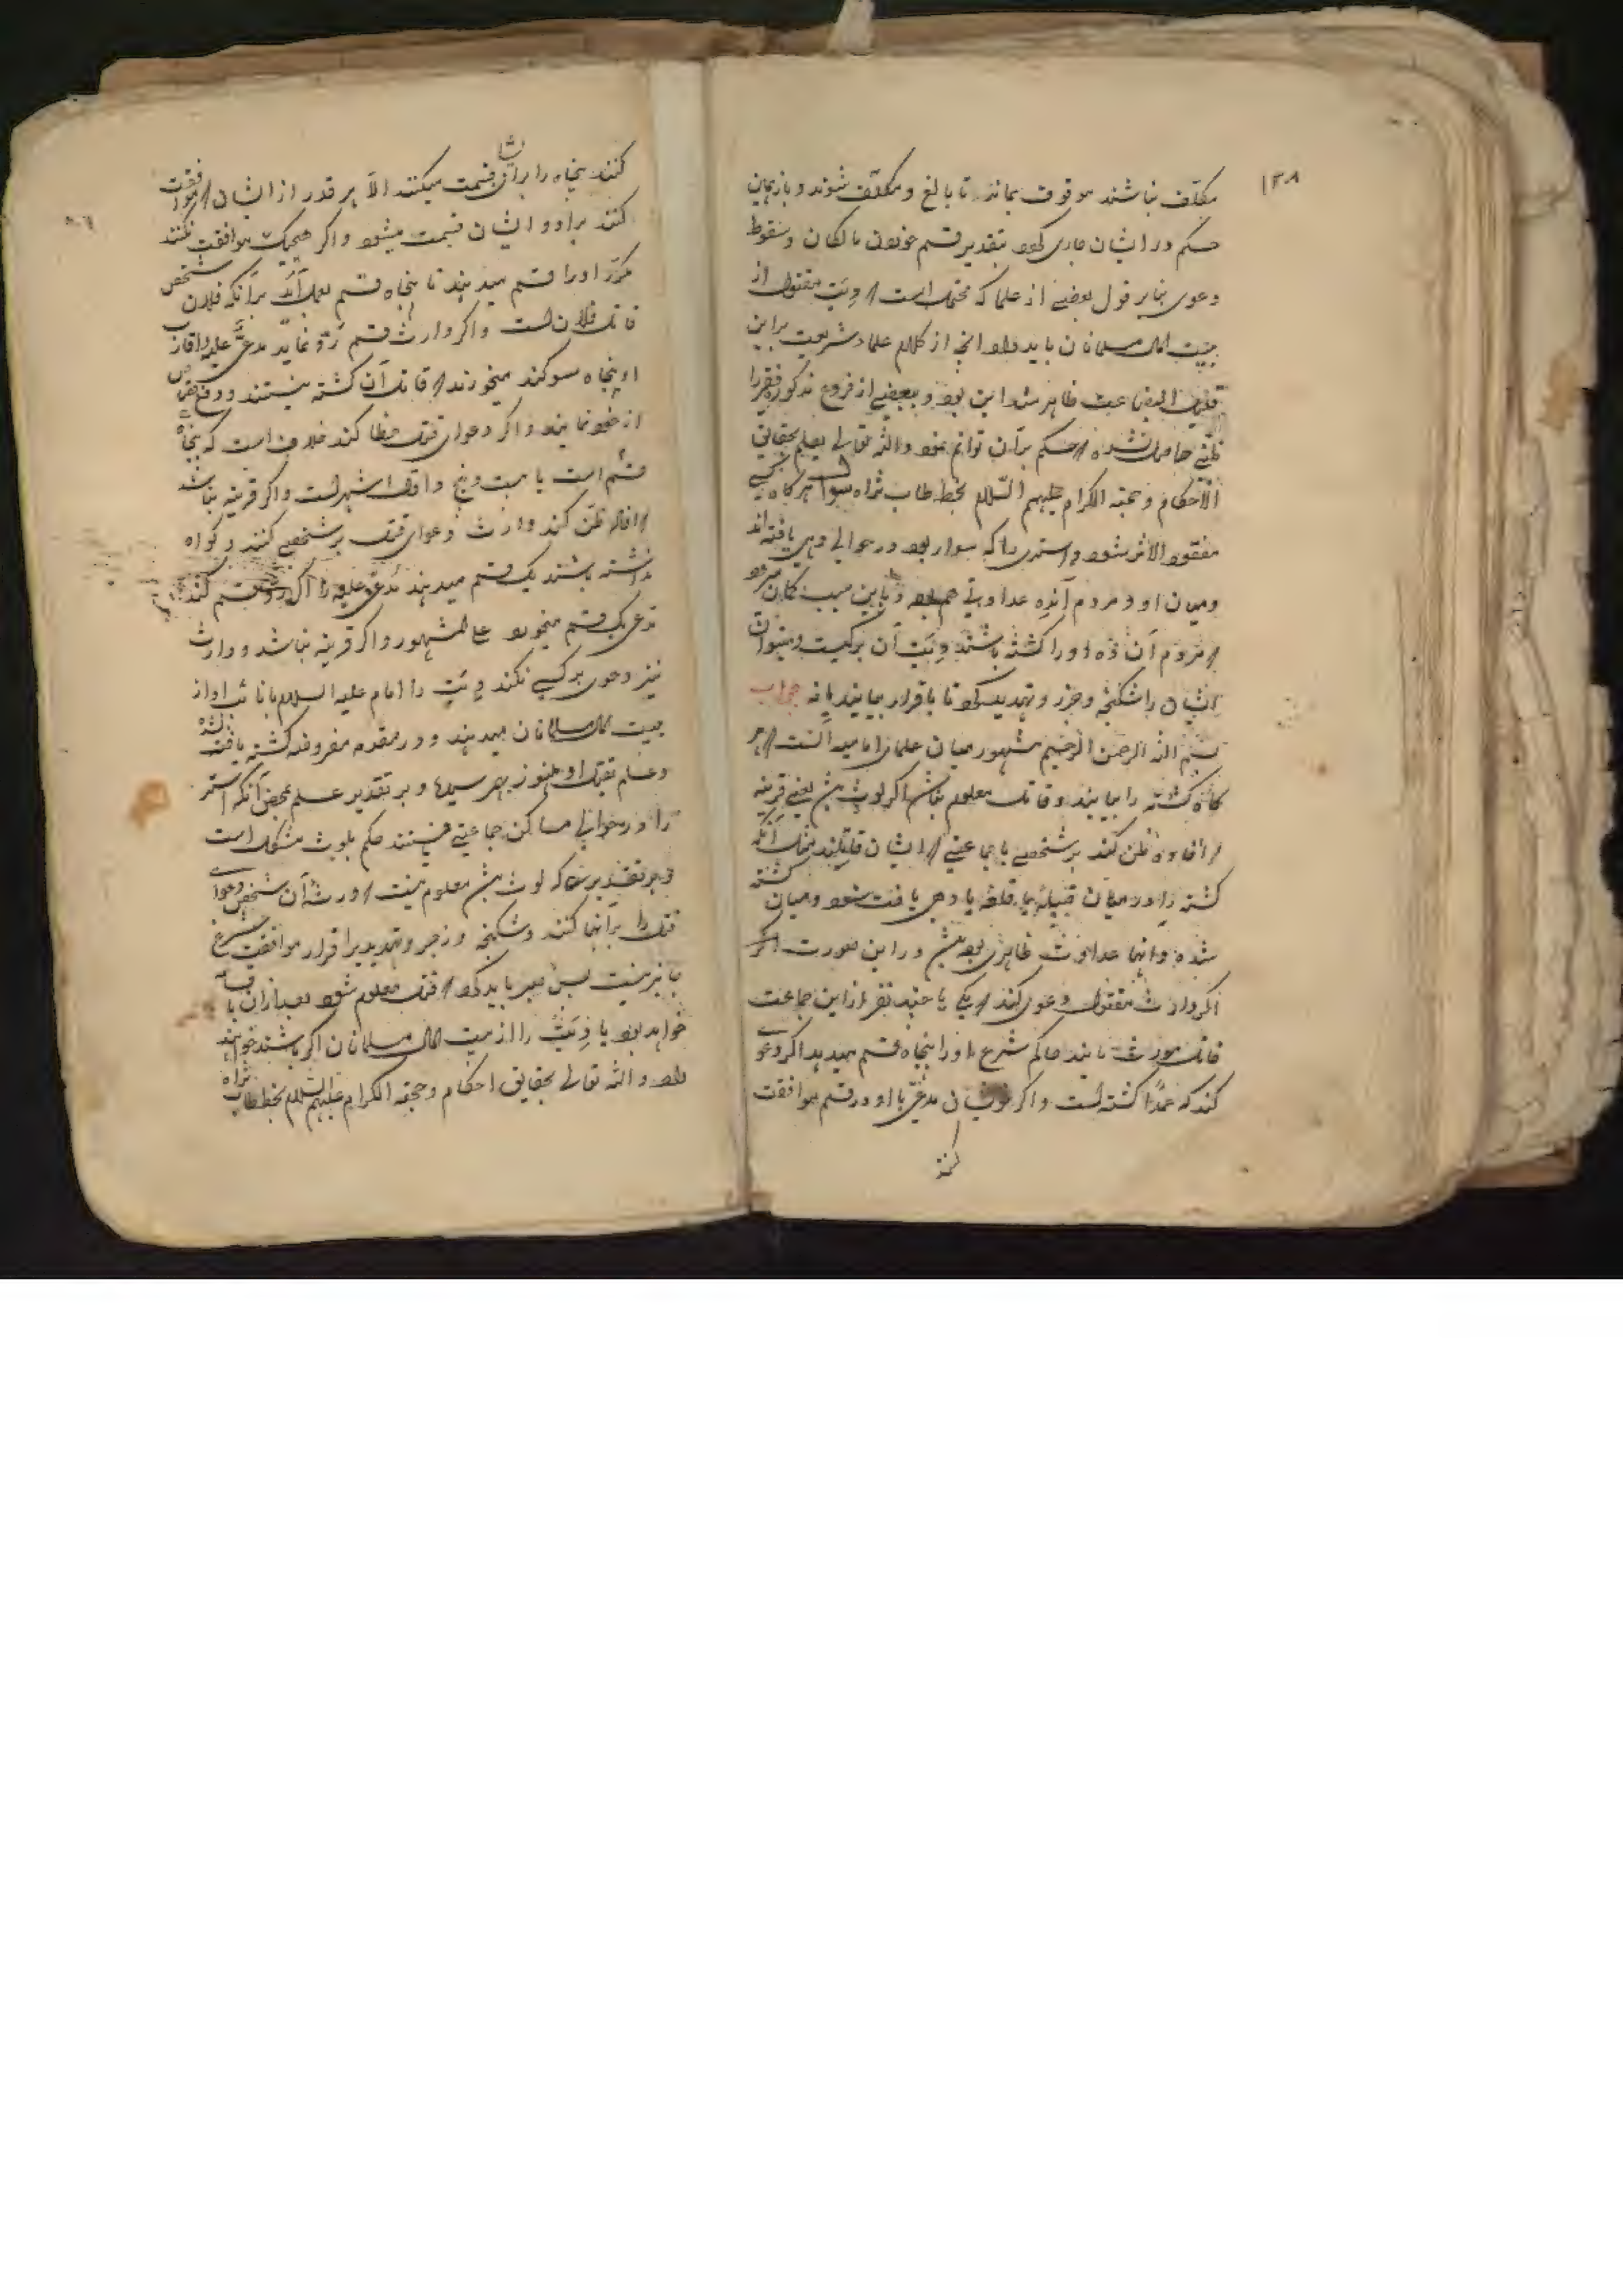 ۱۳۸
مکلف نباشند موقوف بماند تا بالغ و مکلف شوند و باز همین
حکم در ایشان جاری کرد بتقدیر قسم خوردن مالکان و سقوط
دعوی بنابر قول بعضی از علما که محتمل است دیت مقتول از
بیت المال مسلمانان باید داد انچه از کلام علماء شریعت براین
قلیل البضاعت ظاهر شد این بود و ببعضی از فروع مذکوره فقیر را
ظنی حاصل نشده حکم بران توانم نمود والله تعالی یعلم بحقایق
الاحکام و حججه الکرام علیهم السلام بخط طاب ثراه سوال هر گاه کسی
مفقود الاثر شود و استری را که سوار بود در حوالی دهی یافته اند
و میان او و مردم آن ده عداوتی هم بود و باین سبب گمان میرود
مردم آن ده او را کشته باشند دیت آن بر کیست و میتوان
ایشان را شکنجه و زجر و تهدید کرد تا باقرار بیایند یا نه جواب
بسم الله الرحمن الرحیم مشهور میان علماء امامیه آنست هر
گاه کشته را بیابند و قاتل معلوم نباشد اگر لوث باشد یعنی قرینه
افاده ظن کند بر شخصی یا جماعتی ایشان قاتلند مثل آنکه
کشته را در میان قبیله یا قلعه یا دهی یافت شود و میان کشته
شده و آنها عداوت ظاهری بوده باشد در این صورت اگر
اگر وارث مقتول دعوی کند یکی یا چند نفر از این جماعت
قاتل مورث مایند حاکم شرع او را پنجاه قسم میدهد اگر دعوی
کند که عمدا کشته است و اگر خویشان مدعی با او در قسم موافقت
کنند
کنند پنجاه را برایشان قسمت میکنند الا هر قدر از ایشان موافقت
کنند براو و ایشان قسمت میشود و اگر هیچیک موافقت نکنند
مکرر او را قسم میدهند تا پنجاه قسم بعمل آید برآنکه فلان شخص
قاتل فلان است و اگر وارث قسم رد نماید مدعی علیه و اقارب
او پنجاه سوکند میخورند قاتل آن کشته نیستند و دفع قصاص
از خود نمایند و اگر دعوای قتل خطا کند خلاف است که پنجاه
قسم است یا بیست و پنج و اول اشهر است و اگر قرینه نباشد
افاده ظن کند وارث دعوای قتل بر شخصی کنند و کواه
نداشته باشند یک قسم میدهند مدعی علیه را اگر رد قسم کند
مدعی یک قسم میخورد علی المشهور و اگر قرینه نباشد و وارث
نیز دعوی بر کسی نکند دیت را امام علیه السلام یا نائب او از
بیت المال مسلمانان میدهند و در مقدمه مفروضه کشته یافت نشده
و علم بقتل او هنوز بهم نرسیده و بر تقدیر علم بمحض آنکه استر
را در حوالی مساکن جماعتی هستند حکم بلوث مشکل است
و بر تقدیری که لوث باشد معلوم نیست ورثه آن شخص دعوای
قتل را برآنها کنند و شکنجه و زجر و تهدید بر اقرار موافقت شرع
جایز نیست پس صبر باید کرد قتل معلوم شود بعد ازان یا قسامه
خواهد بود یا دیت را از بیت المال مسلمانان اگر باشند خواهند
داد والله تعالی بحقایق احکام و حججه الکرام علیهم السلام بخط طاب ثراه